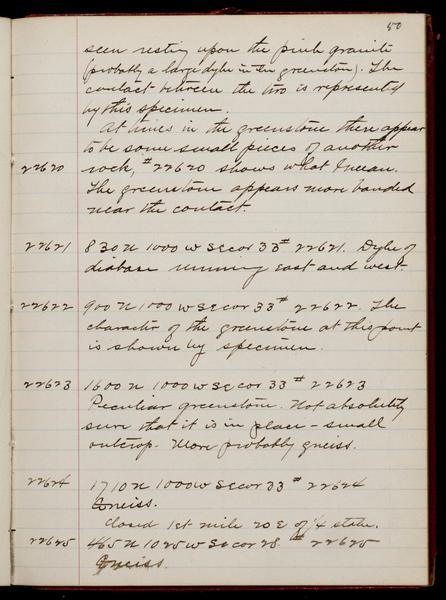 50
seen resting upon the pink granite
(probably a large dyke in the greenstone). The
contact between the two is represented
by this specimen.
At times in the greenstone there appear
to be some small pieces of another
22620 rock, #22620 shows what I mean.
The greenstone appears more banded
near the contact.
22621 830 N 1000 W SE cor 33 # 22621. Dyke of
diabase running east and west.
22622 900 N 1000 W SE cor 33 # 22622. The
character of the greenstone at this point
is shown by specimen.
22623 1600 N 1000 W SE cor 33 # 22623
Peculiar greenstone. Not absolutely
sure that it is in place - small
outcrop. More probably gneiss.
22624 1710 N 1000 W SE cor 33 # 22624
Gneiss.
Closed 1st mile 20 E of 1/4 stake.
22625 465 N 1025 W SE cor 28 # 22625
Gneiss.